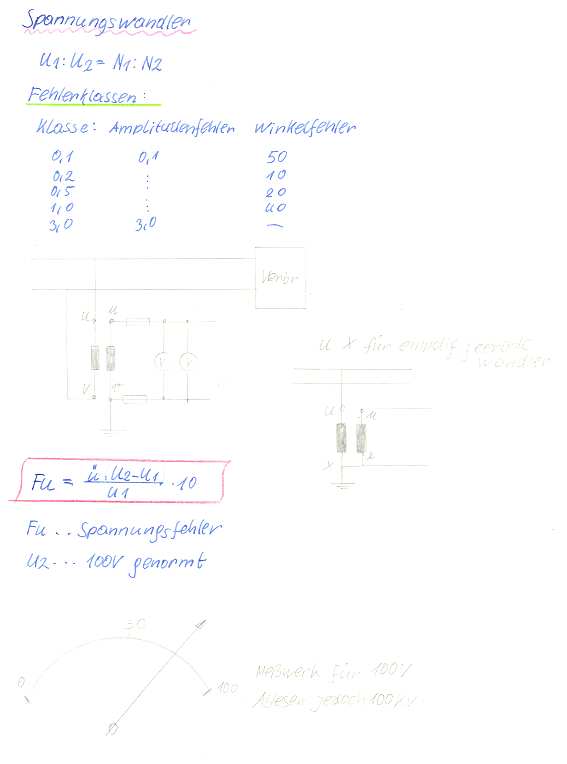 Spannungswandler
U1:U2 = N1:N2
Fehlerklassen:
Klasse: Amplitudenfehler Winkelfehler
0,1 0,1 50
0,2 : 10
0,5 : 20
1,0 : 40
3,0 3,0 —
Verbr
U u
V V
V v
U X für einpolig geerdete
wandler
U u
X x
Fu = ü.U2-U1 / U1 . 10
Fu .. Spannungsfehler
U2 ... 100V genormt
50
0 100
Meßwerk für 100V
Ablesen jedoch 100kV